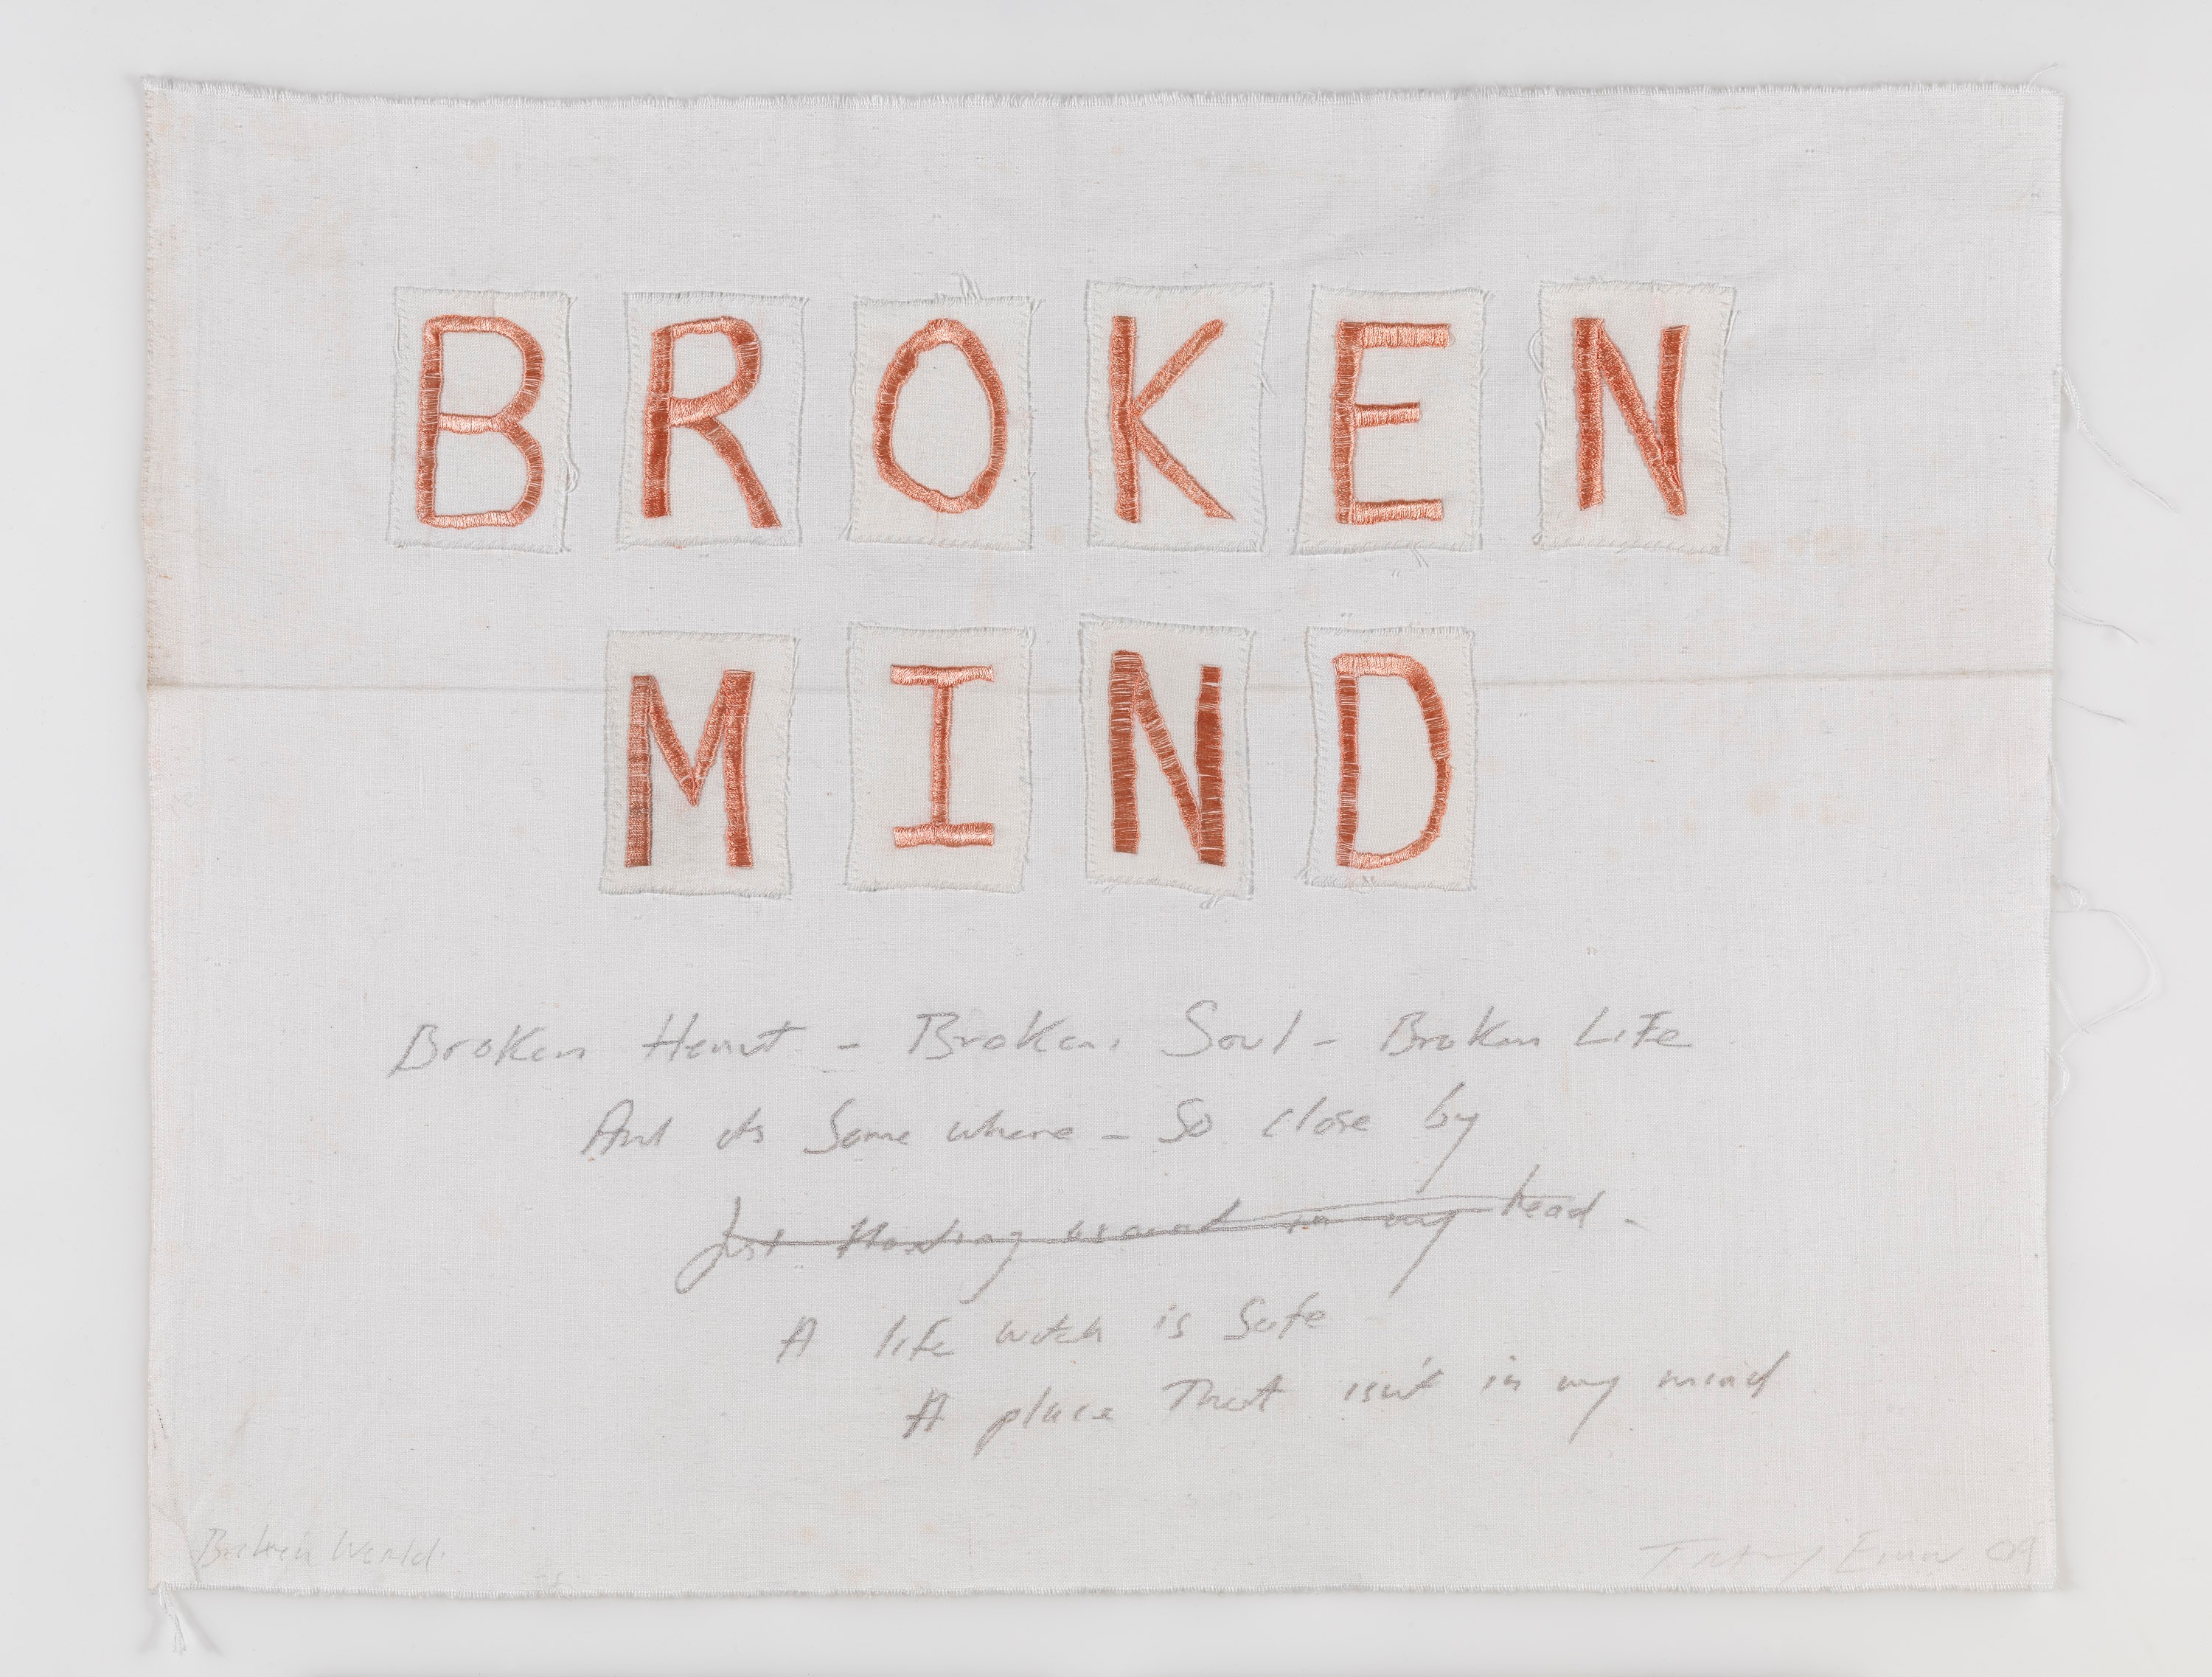 BROKEN
MIND
Broken Heart - Broken Soul - Broken LiFe
And its Some where - So close by
Just floating around in my head -
A life witch is Safe
A place That isn't in my mind
Broken World.
Tracey Emin 09